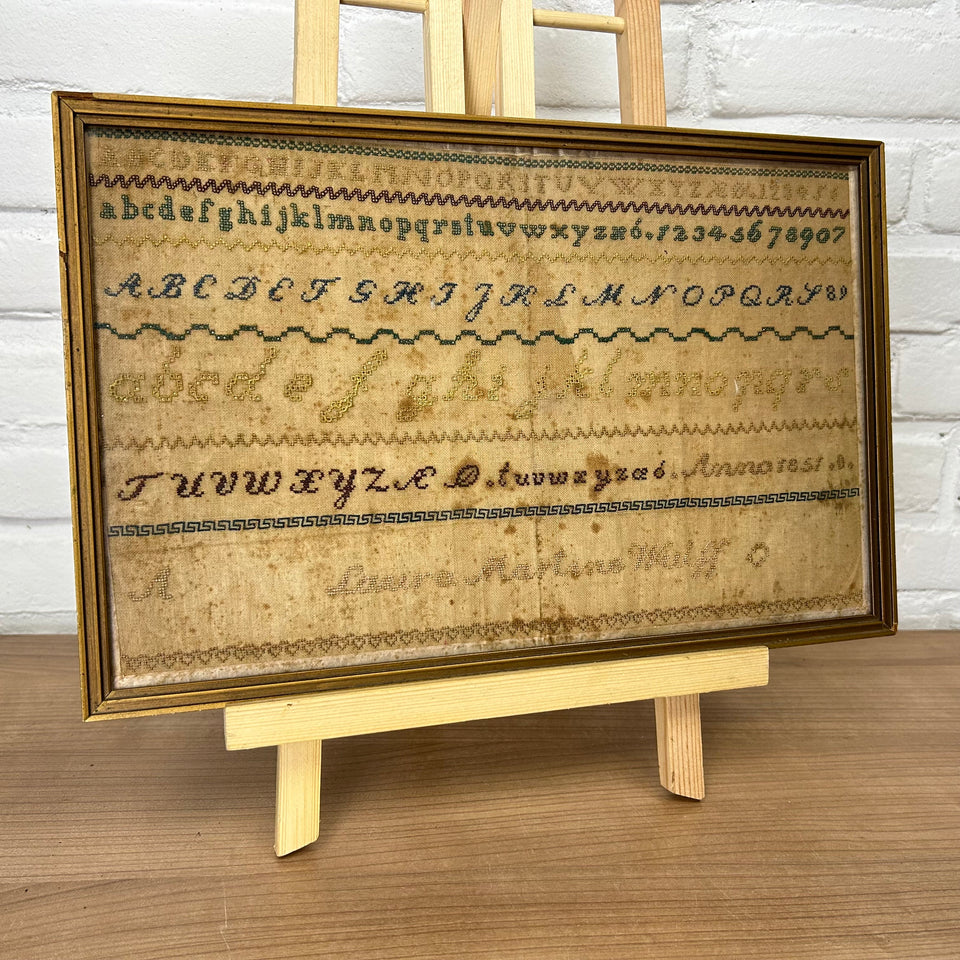 ABCDEFGHIJKLMNOPQRSTUVWXYZ
abcdefghijklmnopqrstuvwxyzæó.12345678907
ABCDEFGHIJJKLMNOPQRS89
abcdefghijklmnopqrs
TUVWXYZÆØ.tuvwxyzæó.Anno1851.
A Laura Martene Wolff O